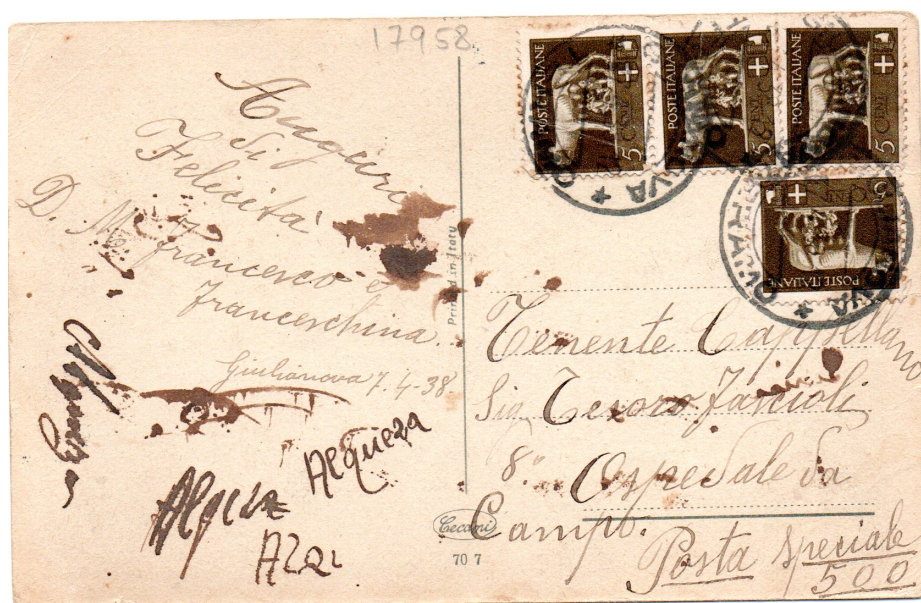 17958
Auguri
di
Felicità
D. M. Francesco e
Franceschina.
Giulianova 7-4-38
Alqueza
Alqueza
Printed in Italy
Cecami
70 7
POSTE ITALIANE
5 CENT
POSTE ITALIANE
5 CENT
POSTE ITALIANE
5 CENT
POSTE ITALIANE
5 CENT
Tenente Cappellano
Sig. Tesoro Fancioli
8° Ospedale da
Campo.
Posta Speciale
500